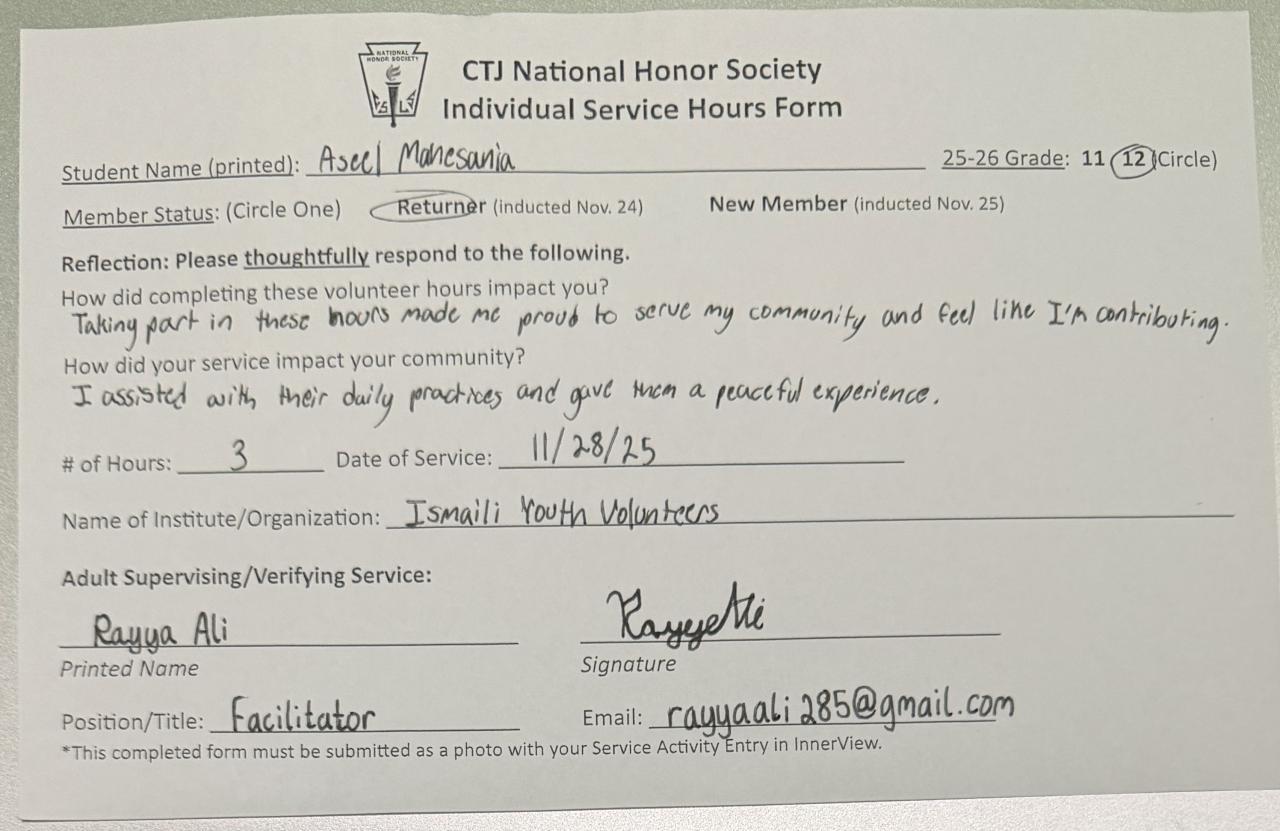 NATIONAL
HONOR SOCIETY
CTJ National Honor Society
Individual Service Hours Form
Student Name (printed): Aseel Mahesania 25-26 Grade: 11 12 (Circle)
Member Status: (Circle One) Returner (inducted Nov. 24) New Member (inducted Nov. 25)
Reflection: Please thoughtfully respond to the following.
How did completing these volunteer hours impact you?
Taking part in these hours made me proud to serve my community and feel like I'm contributing.
How did your service impact your community?
I assisted with their daily practices and gave them a peaceful experience.
# of Hours: 3 Date of Service: 11/28/25
Name of Institute/Organization: Ismaili Youth Volunteers
Adult Supervising/Verifying Service:
Rayya Ali
Printed Name Signature
Position/Title: Facilitator Email: rayyaali285@gmail.com
*This completed form must be submitted as a photo with your Service Activity Entry in InnerView.